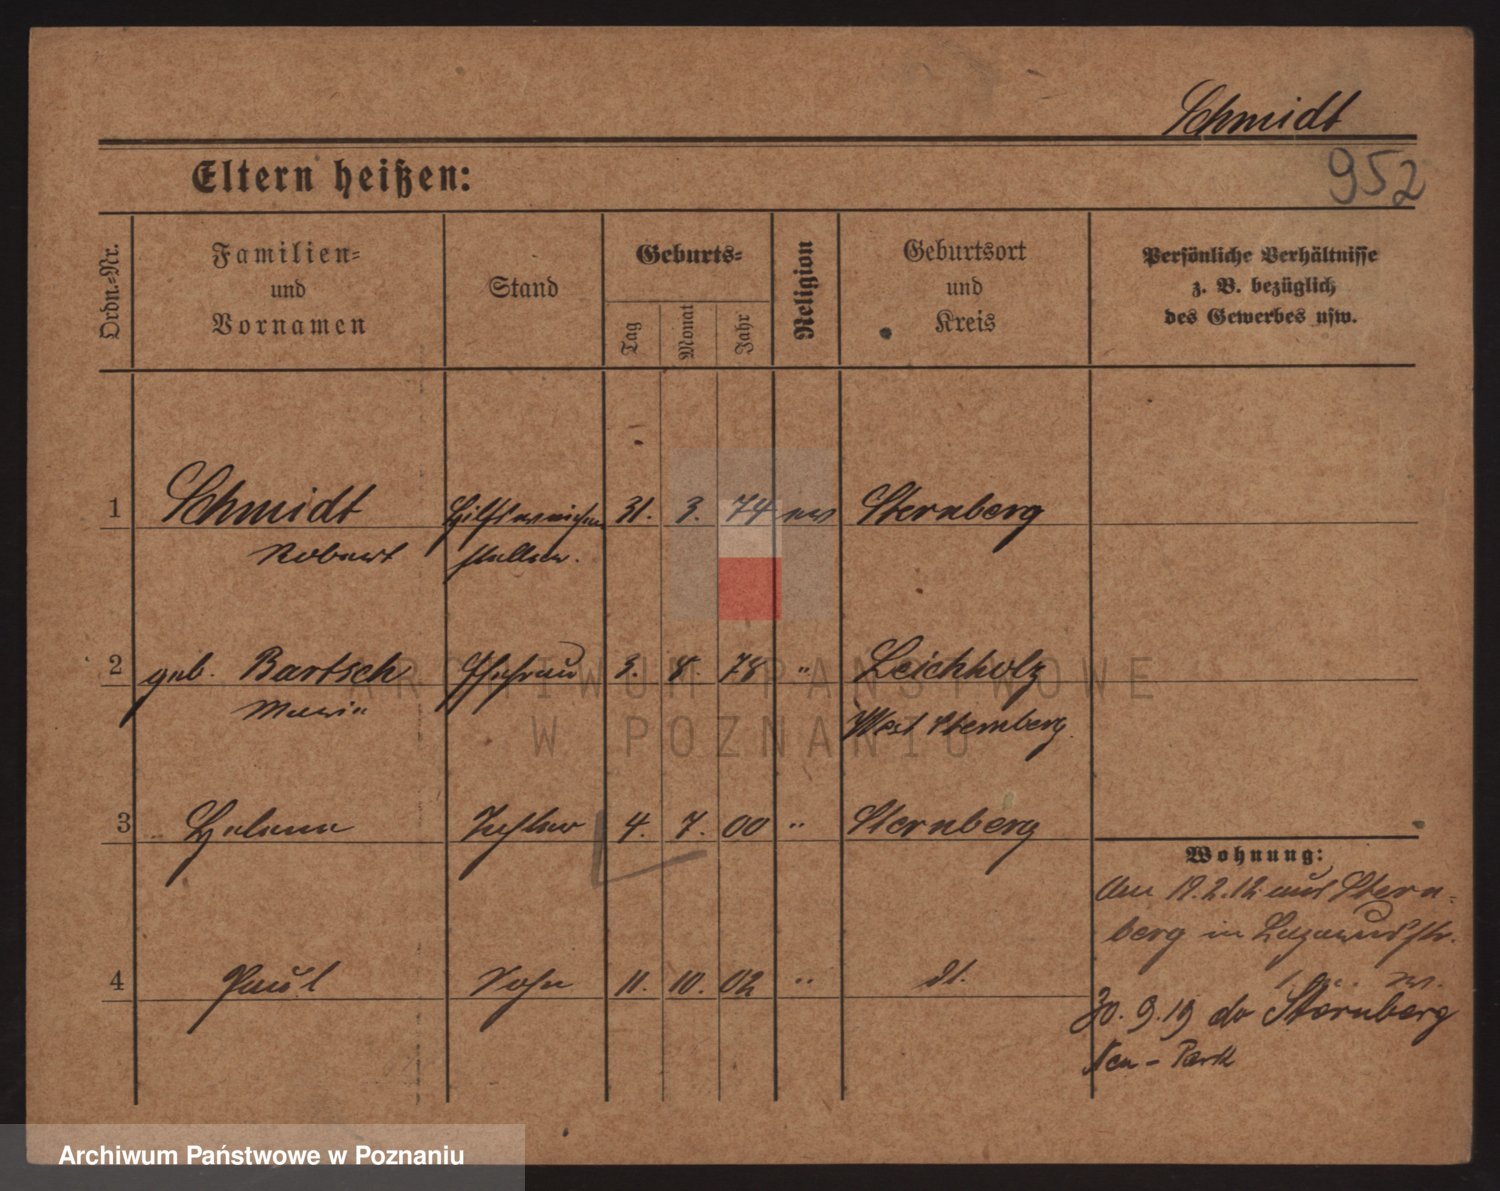 Schmidt
952
Eltern heißen:
Ordn.-Nr.
Familien-
und
Vornamen
Stand
Geburts-
Tag
Monat
Jahr
Religion
Geburtsort
und
Kreis
Persönliche Verhältnisse
z. B. bezüglich
des Gewerbes usw.
1 Schmidt Hilfsweichen 31. 3. 74 ev Sternberg
Robert steller.
2 geb. Bartsch Ehefrau 3. 8. 78 " Leichholz
Maria West Sternberg.
3 Helene Tochter 4. 7. 00 " Sternberg
4 Paul Sohn 11. 10. 02 " dt.
Wohnung:
Am 19.2.12 aus Stern-
berg in Lazarusstr.
30. 9. 19 do Sternberg
Neu - Park
ARCHIWUM PAŃSTWOWE
W POZNANIU
Archiwum Państwowe w Poznaniu